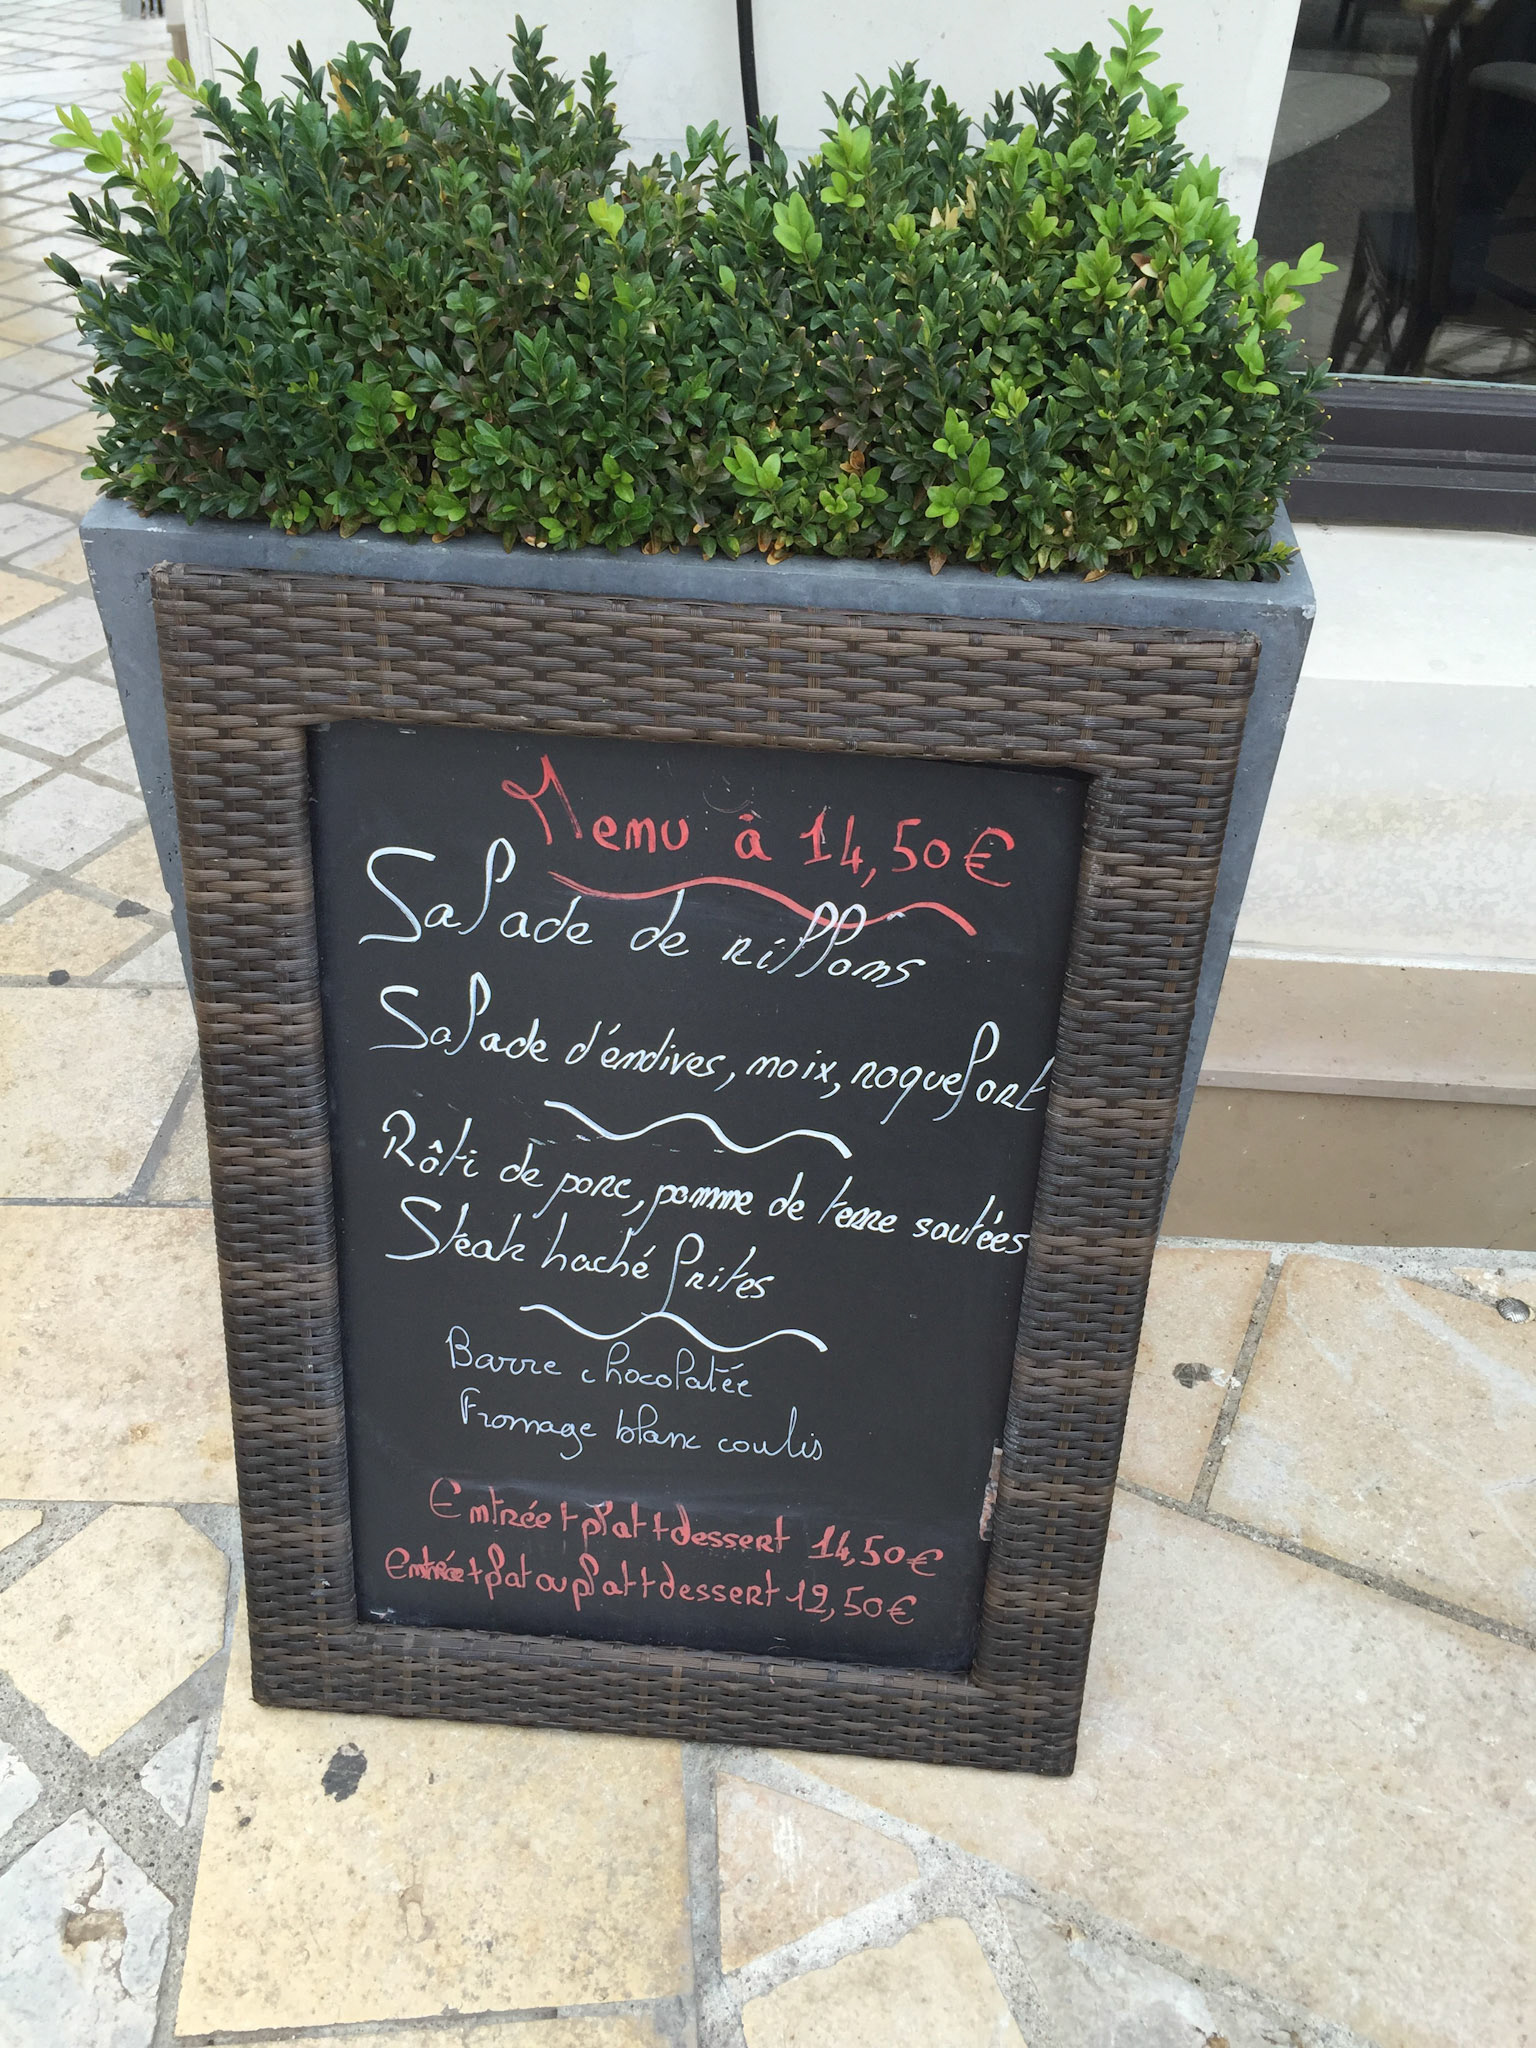 Menu à 14,50€
Salade de rillons
Salade d'éndives, noix, roquefort
Rôti de porc, pomme de terre sautées
Steak haché frites
Barre chocolatée
Fromage blanc coulis
Entrée+plat+dessert 14,50€
Entrée+plat ou plat+dessert 12,50€